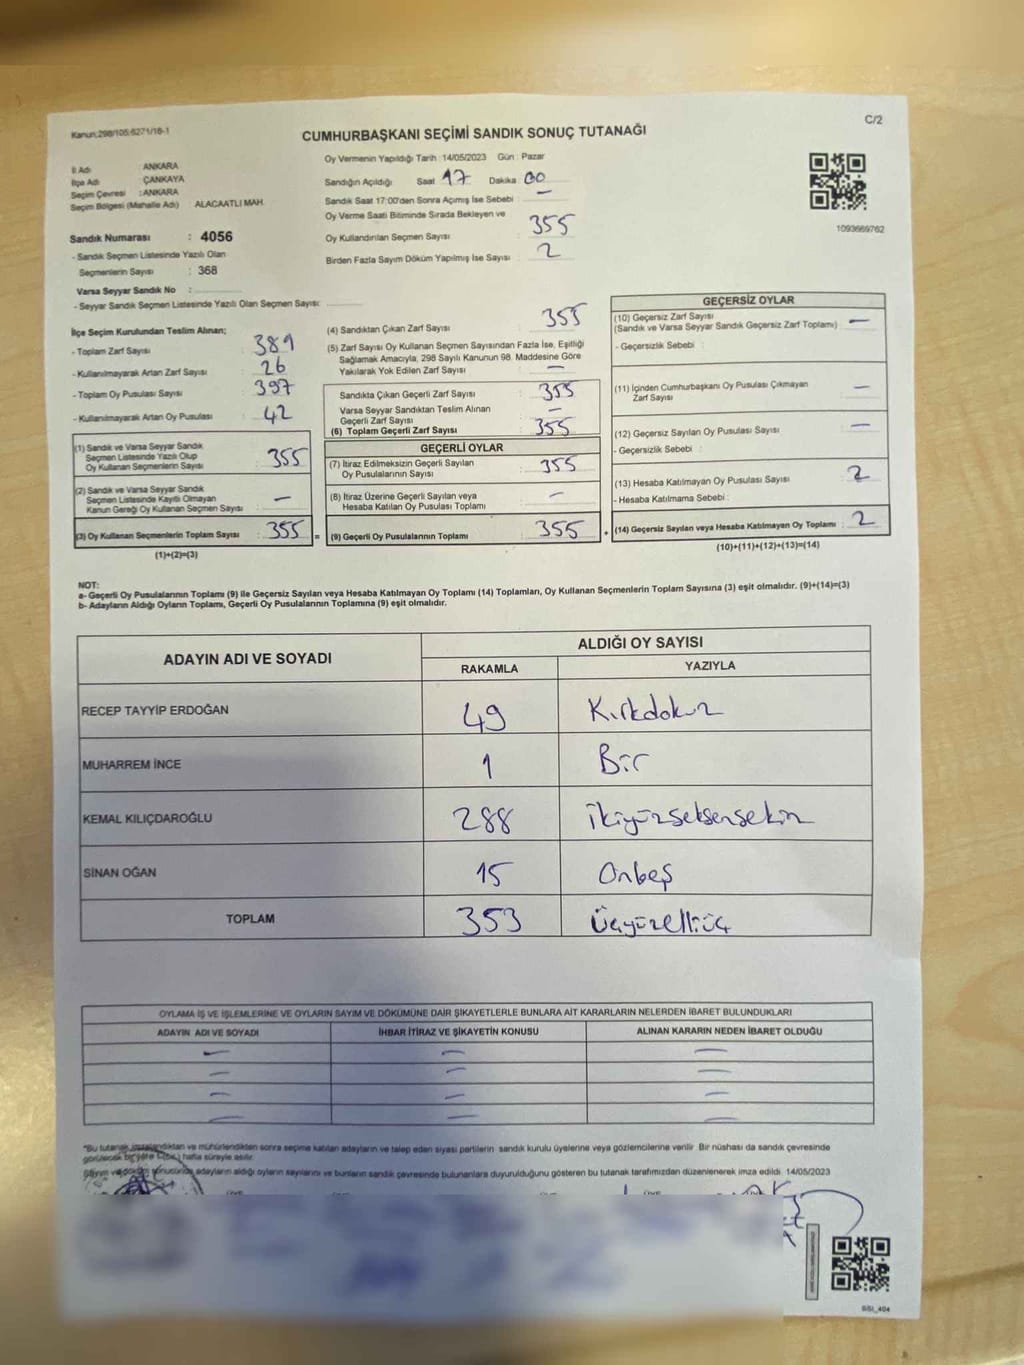 Kanun:298/105;6271/18-1
C/2
CUMHURBAŞKANI SEÇİMİ SANDIK SONUÇ TUTANAĞI
İl Adı ANKARA
İlçe Adı ÇANKAYA
Seçim Çevresi : ANKARA
Seçim Bölgesi (Mahalle Adı) : ALACAATLI MAH.
Sandık Numarası : 4056
- Sandık Seçmen Listesinde Yazılı Olan
Seçmenlerin Sayısı : 368
Varsa Seyyar Sandık No :
- Seyyar Sandık Seçmen Listesinde Yazılı Olan Seçmen Sayısı:
Oy Vermenin Yapıldığı Tarih : 14/05/2023 Gün : Pazar
Sandığın Açıldığı Saat 17 Dakika : 00
Sandık Saat 17:00'den Sonra Açımış İse Sebebi : —
Oy Verme Saati Bitiminde Sırada Bekleyen ve
Oy Kullandırılan Seçmen Sayısı : 355
Birden Fazla Sayım Döküm Yapılmış İse Sayısı : 2
1093669762
İlçe Seçim Kurulundan Teslim Alınan;
- Toplam Zarf Sayısı : 381
- Kullanılmayarak Artan Zarf Sayısı : 26
- Toplam Oy Pusulası Sayısı : 397
- Kullanılmayarak Artan Oy Pusulası : 42
(1) Sandık ve Varsa Seyyar Sandık
Seçmen Listesinde Yazılı Olup
Oy Kullanan Seçmenlerin Sayısı : 355
(2) Sandık ve Varsa Seyyar Sandık
Seçmen Listesinde Kayıtlı Olmayan
Kanun Gereği Oy Kullanan Seçmen Sayısı : —
(3) Oy Kullanan Seçmenlerin Toplam Sayısı : 355 =
(1)+(2)=(3)
(4) Sandıktan Çıkan Zarf Sayısı : 355
(5) Zarf Sayısı Oy Kullanan Seçmen Sayısından Fazla İse, Eşitliği
Sağlamak Amacıyla, 298 Sayılı Kanunun 98. Maddesine Göre
Yakılarak Yok Edilen Zarf Sayısı : —
Sandıkta Çıkan Geçerli Zarf Sayısı : 355
Varsa Seyyar Sandıktan Teslim Alınan
Geçerli Zarf Sayısı : —
(6) Toplam Geçerli Zarf Sayısı : 355
GEÇERLİ OYLAR
(7) İtiraz Edilmeksizin Geçerli Sayılan
Oy Pusulalarının Sayısı : 355
(8) İtiraz Üzerine Geçerli Sayılan veya
Hesaba Katılan Oy Pusulası Toplamı : —
(9) Geçerli Oy Pusulalarının Toplamı : 355 +
GEÇERSİZ OYLAR
(10) Geçersiz Zarf Sayısı
(Sandık ve Varsa Seyyar Sandık Geçersiz Zarf Toplamı) : —
- Geçersizlik Sebebi :
(11) İçinden Cumhurbaşkanı Oy Pusulası Çıkmayan
Zarf Sayısı : —
(12) Geçersiz Sayılan Oy Pusulası Sayısı : —
- Geçersizlik Sebebi :
(13) Hesaba Katılmayan Oy Pusulası Sayısı : 2
- Hesaba Katılmama Sebebi :
(14) Geçersiz Sayılan veya Hesaba Katılmayan Oy Toplamı : 2
(10)+(11)+(12)+(13)=(14)
NOT:
a- Geçerli Oy Pusulalarının Toplamı (9) ile Geçersiz Sayılan veya Hesaba Katılmayan Oy Toplamı (14) Toplamları, Oy Kullanan Seçmenlerin Toplam Sayısına (3) eşit olmalıdır. (9)+(14)=(3)
b- Adayların Aldığı Oyların Toplamı, Geçerli Oy Pusulalarının Toplamına (9) eşit olmalıdır.
ADAYIN ADI VE SOYADI ALDIĞI OY SAYISI
RAKAMLA YAZIYLA
RECEP TAYYİP ERDOĞAN 49 Kırkdokuz
MUHARREM İNCE 1 Bir
KEMAL KILIÇDAROĞLU 288 ikiyüzseksensekiz
SİNAN OĞAN 15 Onbeş
TOPLAM 353 Üçyüzelliüç
OYLAMA İŞ VE İŞLEMLERİNE VE OYLARIN SAYIM VE DÖKÜMÜNE DAİR ŞİKAYETLERLE BUNLARA AİT KARARLARIN NELERDEN İBARET BULUNDUKLARI
ADAYIN ADI VE SOYADI İHBAR İTİRAZ VE ŞİKAYETİN KONUSU ALINAN KARARIN NEDEN İBARET OLDUĞU
— — —
— — —
— — —
— — —
*Bu tutanak imzalandıktan ve mühürlendikten sonra seçime katılan adayların ve talep eden siyasi partilerin sandık kurulu üyelerine veya gözlemcilerine verilir. Bir nüshası da sandık çevresinde
görülecek bir yere 1 (bir) hafta süreyle asılır.
Sayım ve döküm sonucunda adayların aldığı oyların sayılarını ve bunların sandık çevresinde bulunanlara duyurulduğunu gösteren bu tutanak tarafımızdan düzenlenerek imza edildi. 14/05/2023
SSI_404